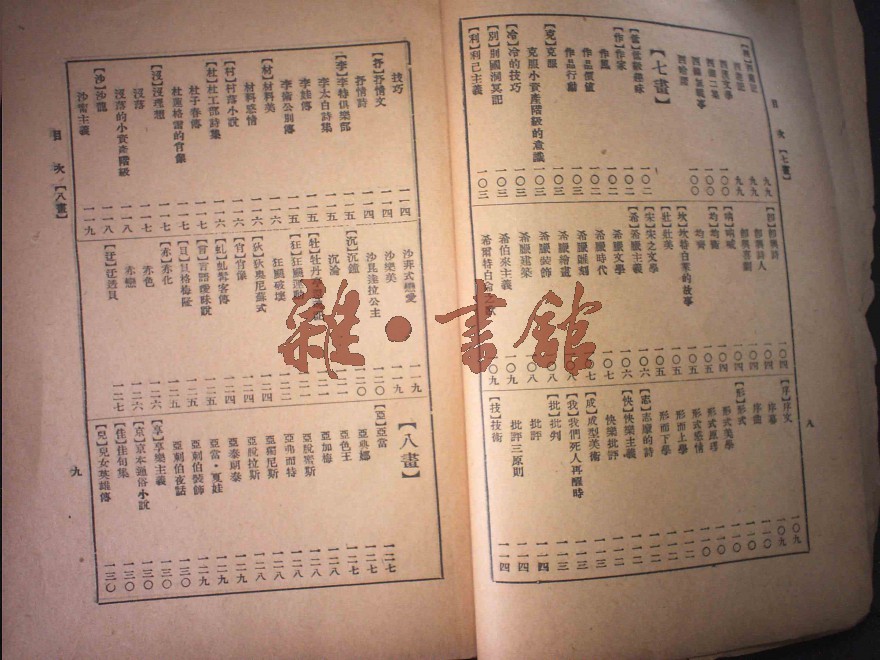 目次【七畫】
西遊記 九九
西漢文學
【七畫】
【低】低級趣味 一〇二
【作】作家 一〇二
作風 一〇二
作品價值 一〇二
作品行動 一〇三
【克】克服 一〇三
克服小資產階級的意識 一〇三
【冷】冷的技巧 一〇三
【別】別國洞冥記 一〇三
【利】利己主義 一〇三
【即】即興詩 一〇四
即興詩人 一〇四
即興喜劇 一〇四
【吶】吶喊 一〇四
【均】均衡 一〇五
均齊 一〇五
【坎】坎特白萊的故事 一〇五
【壯】壯美 一〇五
【宋】宋之文學 一〇六
【希】希臘主義 一〇六
希臘文學 一〇六
希臘時代 一〇七
希臘雕刻 一〇七
希臘繪畫 一〇八
希臘裝飾 一〇八
希臘建築 一〇九
希伯來主義 一〇九
希爾特白倫之歌 一〇九
【序】序文 一〇九
序幕 一〇九
序曲 一一〇
【形】形式 一一〇
形式美學 一一〇
形式原理 一一〇
形式感情 一一〇
形而上學 一一一
形而下學 一一一
【志】志摩的詩 一一二
【快】快樂主義 一一二
快樂批評 一一二
【成】成型美術 一一三
【我】我們死人再醒時 一一三
【批】批判 一一四
批評 一一四
批評三原則 一一四
【技】技術 一一四
八
技巧 一一四
【抒】抒情文 一一四
抒情詩 一一四
【李】李特俱樂部 一一五
李太白詩集 一一五
李娃傳 一一五
李衛公別傳 一一五
【材】材料美 一一六
材料感情 一一六
【村】村落小說 一一六
【杜】杜工部詩集 一一六
杜子春傳 一一七
杜蓮格雷的肖像 一一七
【沒】沒理想 一一七
沒落 一一七
沒落的小資產階級 一一八
【沙】沙龍 一一八
沙甯主義 一一九
沙菲式戀愛 一一九
沙樂美 一一九
沙貝達拉公主 一二〇
【沉】沉鐘 一二一
沉淪
【牡】牡丹亭
【狂】狂飆運動 一二二
狂飆破壞 一二二
【狄】狄奧尼蘇式 一二四
【肖】肖像 一二四
【虬】虬髯客傳 一二四
【言】言語曖昧說 一二五
【貝】貝格梅隆 一二五
【赤】赤化 一二五
赤色 一二六
赤戀 一二六
【迂】迂迴貝 一二七
【八畫】
【亞】亞當 一二七
亞典娜 一二七
亞色王 一二七
亞加梅 一二八
亞脫密斯 一二八
亞弗而特 一二八
亞獨尼斯 一二八
亞脫拉斯 一二八
亞泰剌泰 一二九
亞當·夏娃 一二九
亞剌伯裝飾 一二九
亞剌伯夜話 一三〇
【享】享樂主義 一三〇
【京】京本通俗小說 一三〇
【佳】佳句集 一三〇
【兒】兒女英雄傳 一三〇
目次【八畫】
九
雜·書館